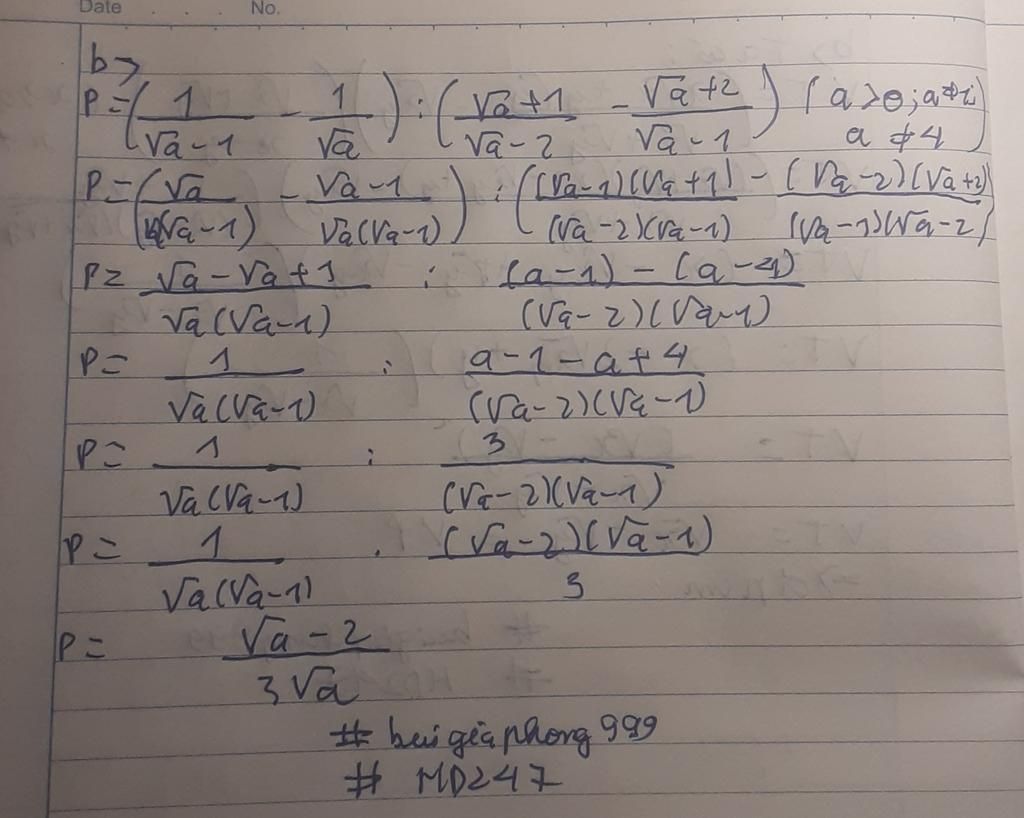 Date No.
b>
P = (1/(√a - 1) - 1/√a) : ((√a + 1)/(√a - 2) - (√a + 2)/(√a - 1)) (a > 0; a ≠ 1; a ≠ 4)
P = (√a/(√a(√a - 1)) - (√a - 1)/(√a(√a - 1))) : (((√a - 1)(√a + 1))/((√a - 2)(√a - 1)) - ((√a - 2)(√a + 2))/((√a - 1)(√a - 2)))
P = (√a - √a + 1)/(√a(√a - 1)) : ((a - 1) - (a - 4))/((√a - 2)(√a - 1))
P = 1/(√a(√a - 1)) : (a - 1 - a + 4)/((√a - 2)(√a - 1))
P = 1/(√a(√a - 1)) : 3/((√a - 2)(√a - 1))
P = 1/(√a(√a - 1)) . ((√a - 2)(√a - 1))/3
P = (√a - 2)/(3√a)
# buigiaphong999
# MD247